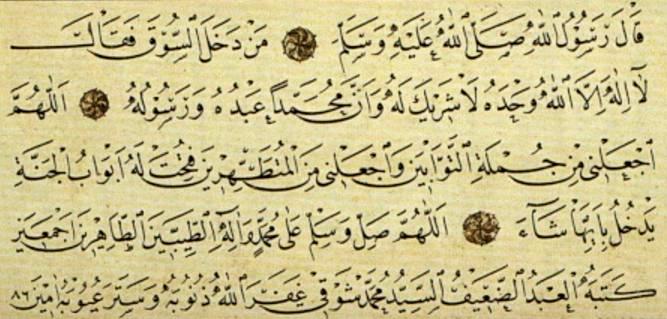 قَالَ رَسُولُ اللّٰهِ صَلَّى اللّٰهُ عَلَيْهِ وَسَلَّمَ ۝ مَنْ دَخَلَ السُّوقَ فَقَالَ
لَا اِلٰهَ اِلَّا اللّٰهُ وَحْدَهُ لَا شَرِيكَ لَهُ وَاَنَّ مُحَمَّدًا عَبْدُهُ وَرَسُولُهُ ۝ اَللّٰهُمَّ
اجْعَلْنِى مِنْ جُمْلَةِ التَّوَّابِينَ وَاجْعَلْنِى مِنَ الْمُتَطَهِّرِينَ فُتِحَتْ لَهُ اَبْوَابُ الْجَنَّةِ
يَدْخُلُ بِاَيِّهَا شَآءَ ۝ اَللّٰهُمَّ صَلِّ وَسَلِّمْ عَلَى مُحَمَّدٍ وَاٰلِهِ الطَّيِّبِينَ الطَّاهِرِينَ اَجْمَعِينَ
كَتَبَهُ الْعَبْدُ الضَّعِيفُ السَّيِّدُ مُحَمَّدْ شَوْقِى غَفَرَ اللّٰهُ ذُنُوبَهُ وَسَتَرَ عُيُوبَهُ اٰمِينَ ٨٦